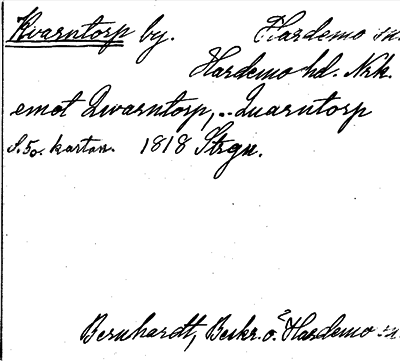 Kvarntorp by. Hardemo sn.
Hardemo hd. Nrk.
emot Qvarntorp, -- Quarntorp
S. 50. kartan. 1818 Strgn.
Bernhardt, Beskr. o. Hardemo sn.